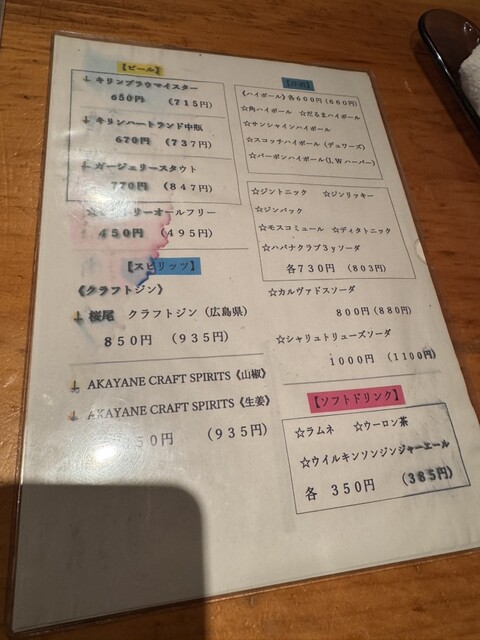 【ビール】
キリンブラウマイスター
650円 (715円)
キリンハートランド中瓶
670円 (737円)
ガージェリースタウト
770円 (847円)
リーオールフリー
450円 (495円)
【スピリッツ】
《クラフトジン》
桜尾 クラフトジン（広島県）
850円 (935円)
AKAYANE CRAFT SPIRITS《山椒》
AKAYANE CRAFT SPIRITS《生姜》
50円 (935円)
《ハイボール》各600円 (660円)
☆角ハイボール ☆だるまハイボール
☆サンシャインハイボール
☆スコッチハイボール（デュワーズ）
☆バーボンハイボール(I.Wハーパー)
☆ジントニック ☆ジンリッキー
☆ジンバック
☆モスコミュール ☆ディタトニック
☆ハバナクラブ3yソーダ
各730円 (803円)
☆カルヴァドスソーダ
800円(880円)
☆シャリュトリューズソーダ
1000円 (1100円)
【ソフトドリンク】
☆ラムネ ☆ウーロン茶
☆ウイルキンソンジンジャーエール
各 350円 (385円)